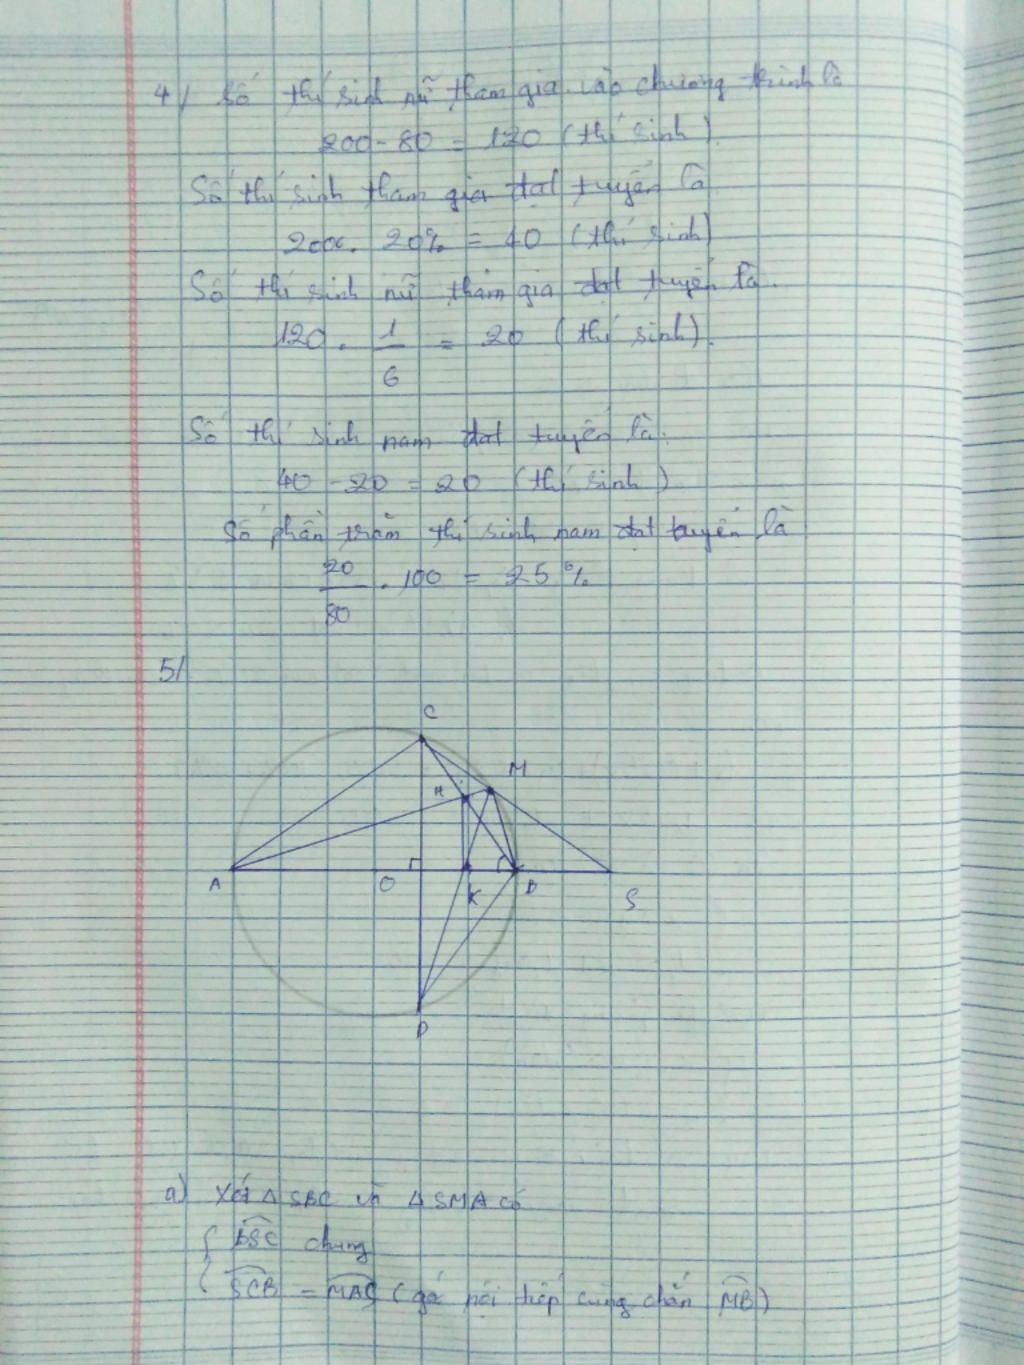 4/ Số thí sinh nữ tham gia vào chương trình là
200 - 80 = 120 (thí sinh)
Số thí sinh tham gia đạt tuyển là
200. 20% = 40 (thí sinh)
Số thí sinh nữ tham gia đạt tuyển là.
120 . 1/6 = 20 (thí sinh).
Số thí sinh nam đạt tuyển là.
40 - 20 = 20 (thí sinh)
Số phần trăm thí sinh nam đạt tuyển là
20/80 . 100 = 25%
5/
C
M
H
A O K B S
D
a) Xét △SBC và △SMA có
BSC chung
SCB = MAS (góc nội tiếp cùng chắn MB)